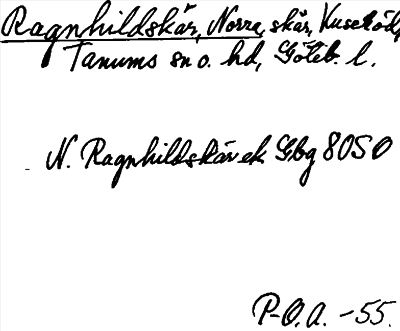 Ragnhildskär, Norra, skär, Kuseröd,
Tanums sn o. hd, Göteb. l.
N. Ragnhildskär ek Gbg 8050
P-O.A. -55.